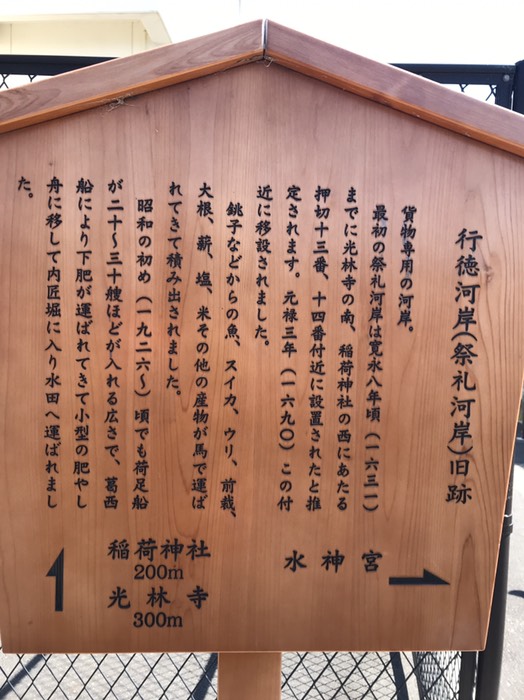 行徳河岸(祭礼河岸)旧跡
貨物専用の河岸。
最初の祭礼河岸は寛永八年頃(一六三一)
までに光林寺の南、稲荷神社の西にあたる
押切十三番、十四番付近に設置されたと推
定されます。元禄三年(一六九〇)この付
近に移設されました。
銚子などからの魚、スイカ、ウリ、前栽、
大根、薪、塩、米その他の産物が馬で運ば
れてきて積み出されました。
昭和の初め(一九二六～)頃でも荷足船
が二十～三十艘ほどが入れる広さで、葛西
船により下肥が運ばれてきて小型の肥やし
舟に移して内匠堀に入り水田へ運ばれまし
た。
水神宮
稲荷神社
200m
光林寺
300m